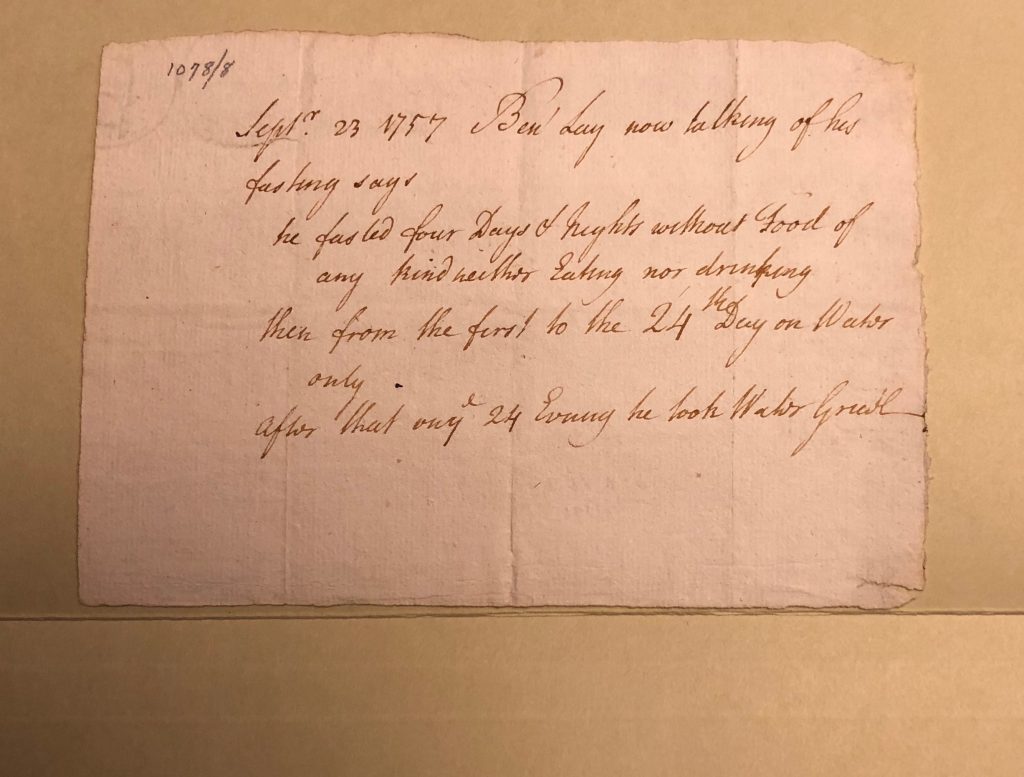 1078/8
Septr. 23 1757 Ben Lay now talking of his
fasting says
he fasted four Days & Nights without Food of
any kind neither Eating nor drinking
then from the first to the 24th Day on Water
only
after that on ye 24 Evening he took Water Gruel